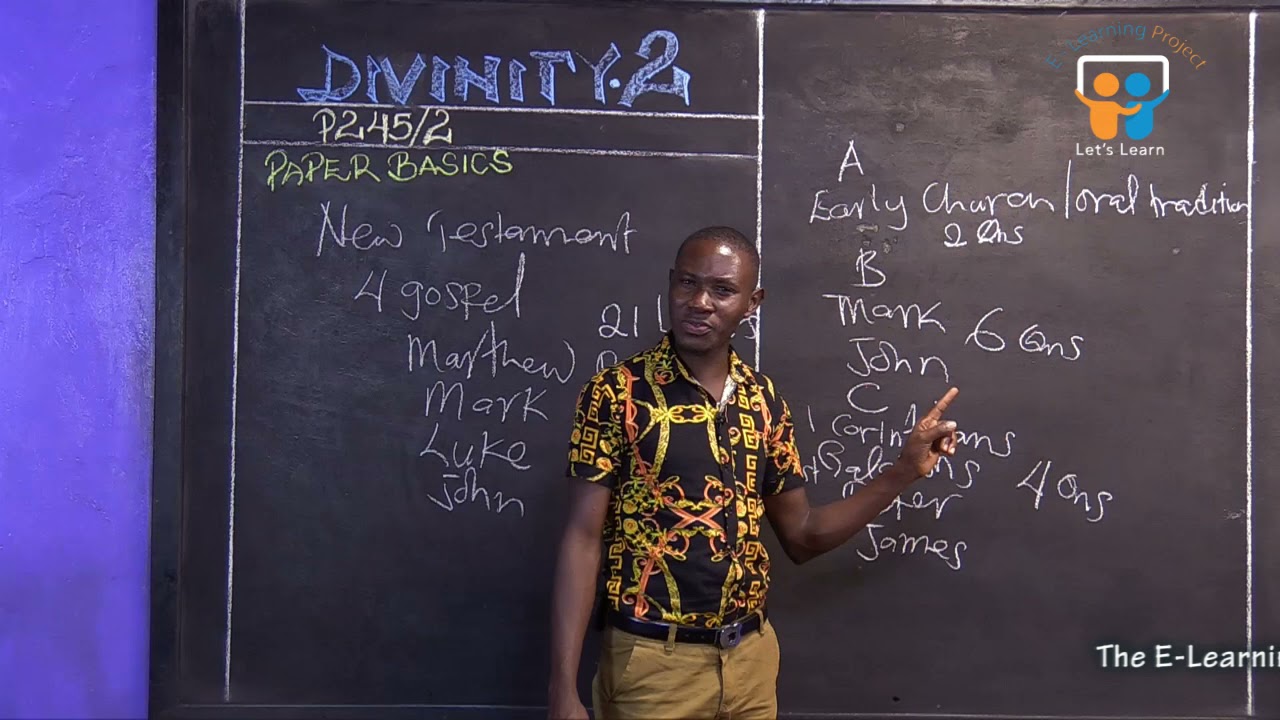 DIVINITY.2
P245/2
PAPER BASICS
New Testament
4 gospel
21
Marthew
Mark
Luke
John
A
Early Church/oral tradition
2 Qns
B
Mark
John
6 Qns
C
1 Corinthians
James
4 Qns
E-Learning Project
Let's Learn
The E-Learni